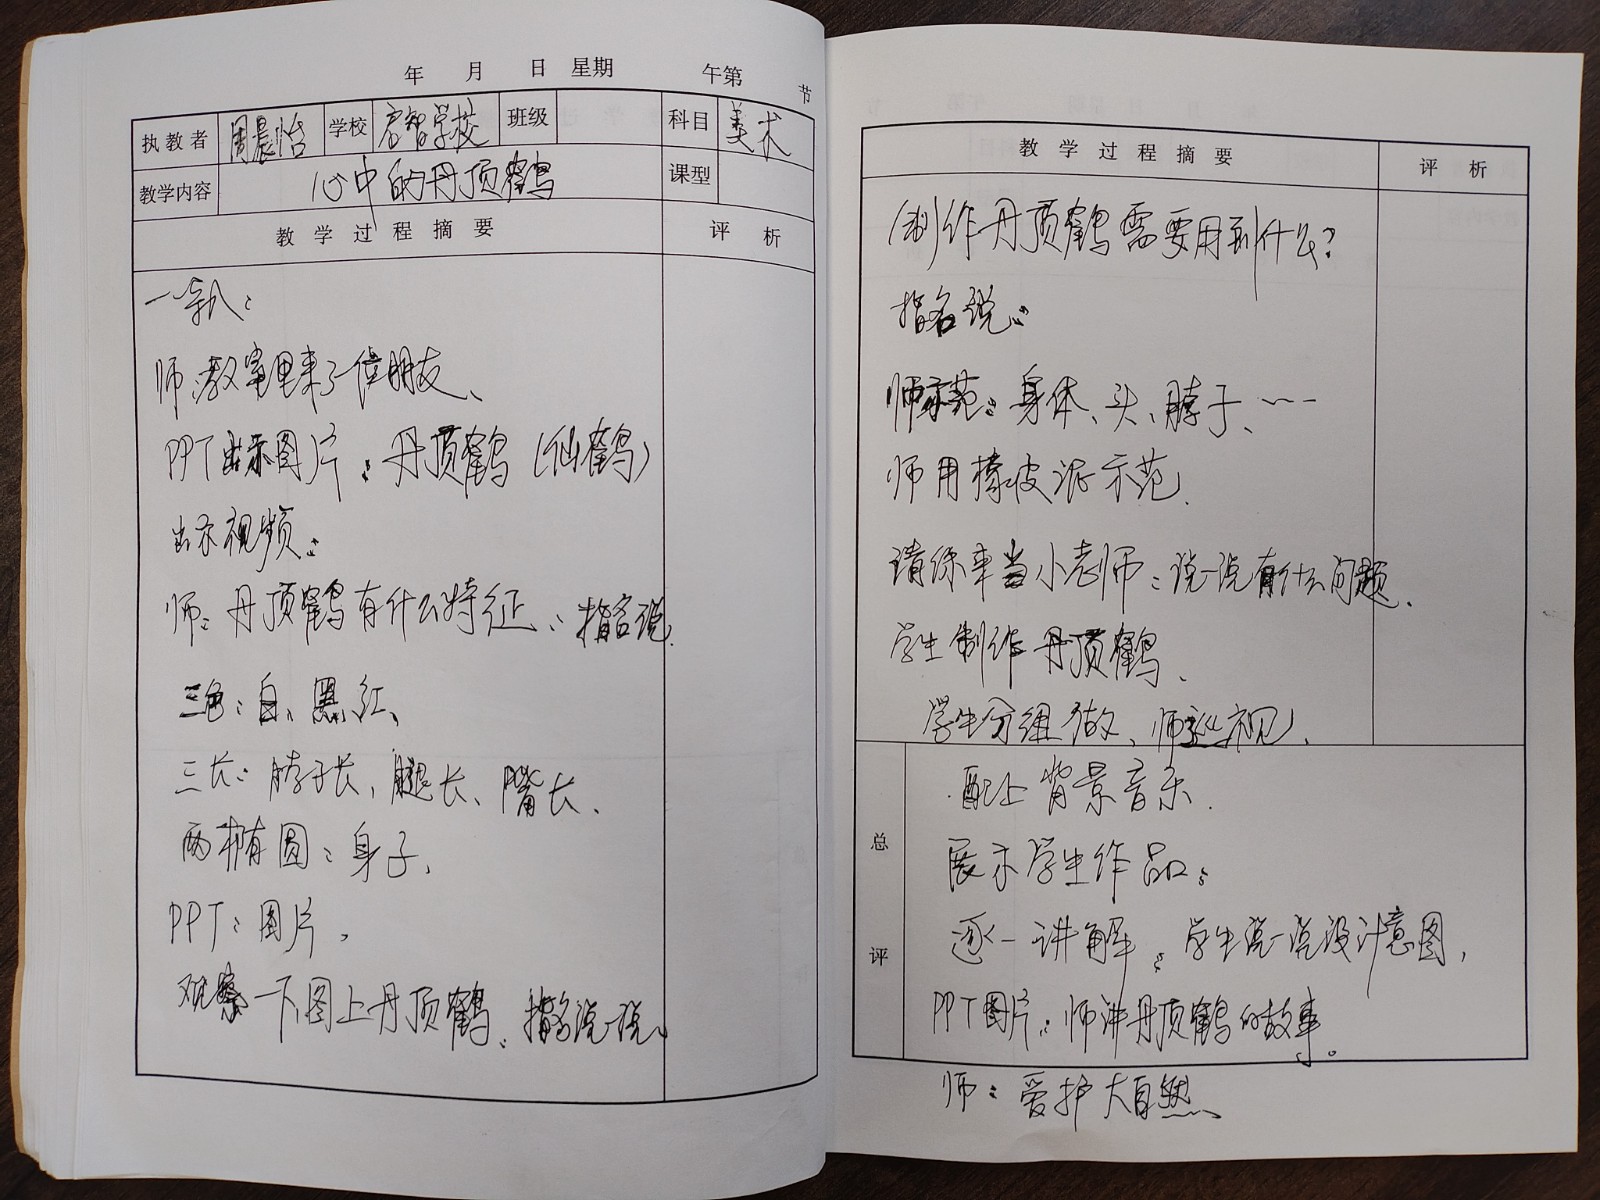 年 月 日 星期 午第 节
执教者 周晨怡 学校 启智学校 班级 科目 美术
教学内容 心中的丹顶鹤 课型
教 学 过 程 摘 要 评 析
一、导入：
师：教室里来了位朋友、
PPT出示图片：丹顶鹤（仙鹤）
出示视频：
师：丹顶鹤有什么特征：指名说.
三色：白、黑、红、
三长：脖子长、腿长、嘴长.
两椭圆：身子.
PPT：图片，
观察一下图上丹顶鹤、指名说一说.
教 学 过 程 摘 要 评 析
制作丹顶鹤需要用到什么?
指名说：
师示范：身体、头、脖子、……
师用橡皮泥示范.
请你来当小老师：说一说有什么问题.
学生制作丹顶鹤.
学生分组做、师巡视.
配上背景音乐.
展示学生作品：
逐一讲解：学生说一说设计意图,
PPT图片：师讲丹顶鹤的故事。
总评
师：爱护大自然、